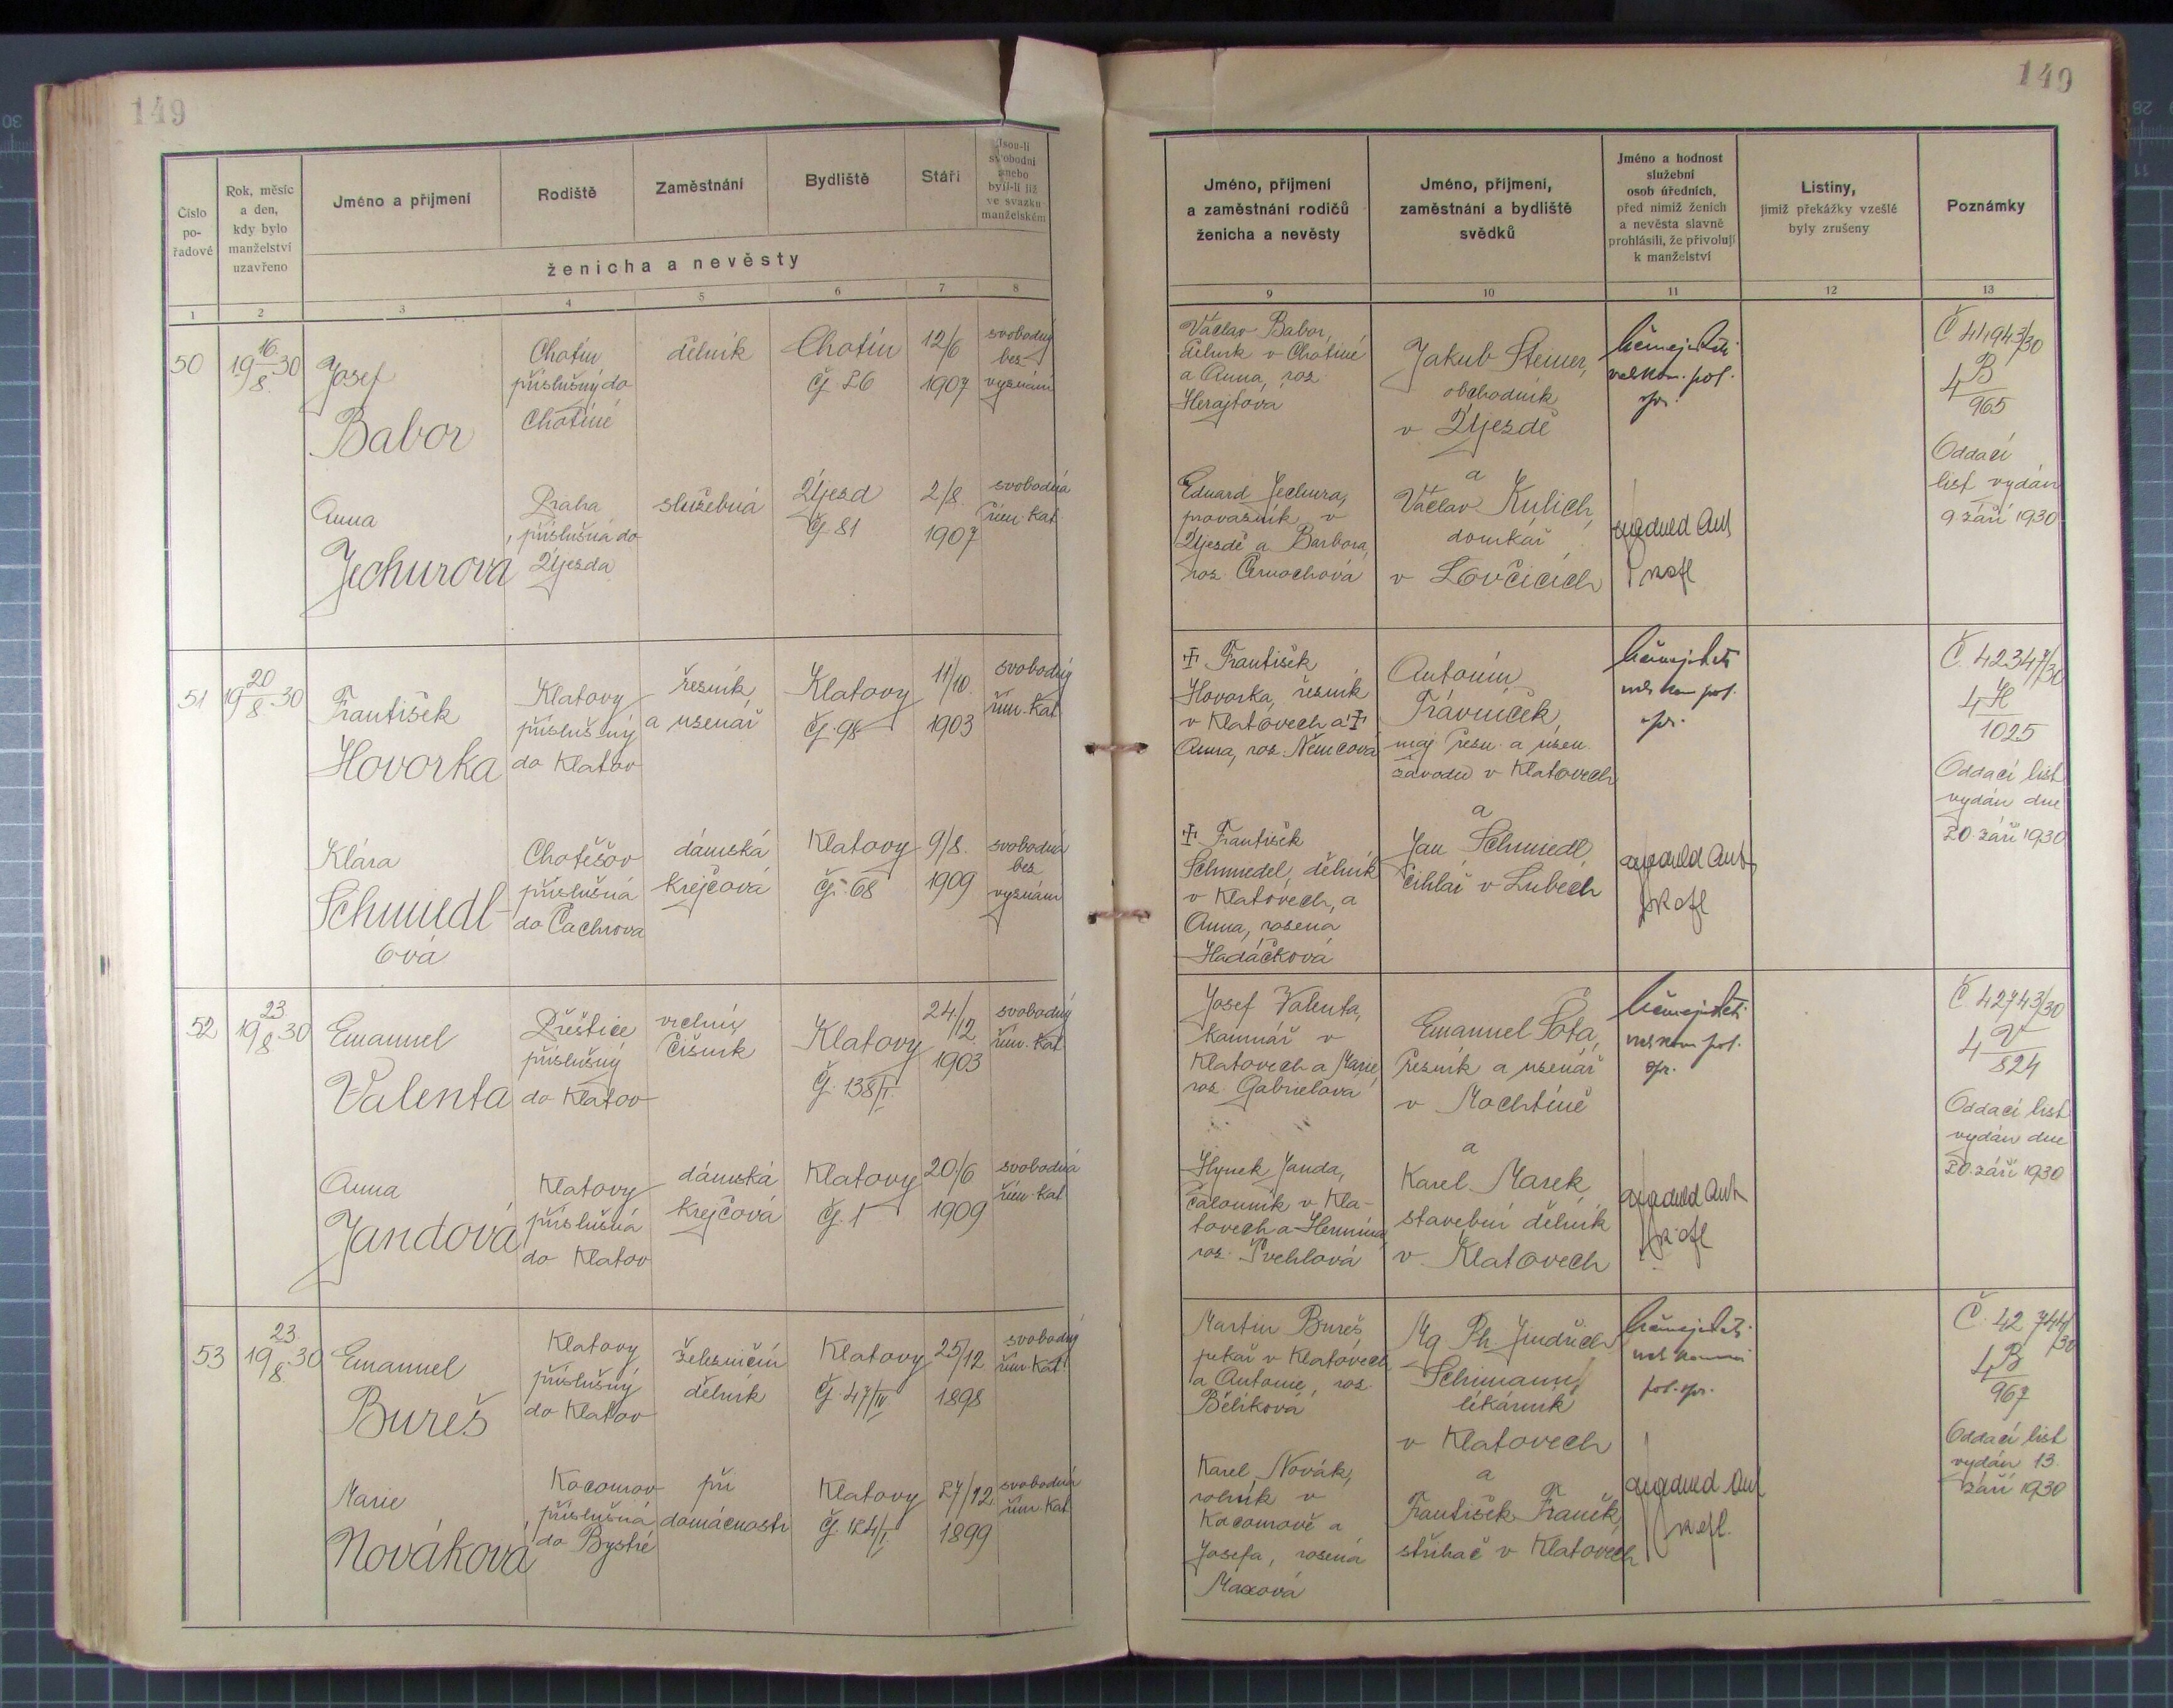 149
149
Číslo pořadové
Rok, měsíc a den, kdy bylo manželství uzavřeno
Jméno a přijmení
Rodiště
Zaměstnání
Bydliště
Stáří
Jsou-li svobodni anebo byli-li již ve svazku manželském
ženicha a nevěsty
1 2 3 4 5 6 7 8
Jméno, přijmení
a zaměstnání rodičů
ženicha a nevěsty
Jméno, přijmení,
zaměstnání a bydliště
svědků
Jméno a hodnost
služební
osob úředních,
před nimiž ženich
a nevěsta slavně
prohlásili, že přivolují
k manželství
Listiny,
jimiž překážky vzešlé
byly zrušeny
Poznámky
9 10 11 12 13
50
16
19 30
8.
Josef
Babor
Chotín
příslušný do
Chotíně
dělník
Chotín
Č. 26
12/6
1907
svobodný
bez
vyznání
Václav Babor,
dělník v Chotíně
a Anna, roz.
Herajtova
Jakub Steiner,
obchodník
v Újezdě
a
Václav Kulich,
domkář
v Lovčicích
Č 41943/30
4 B
965
Oddací
list vydán
9. září 1930
Anna
Jechurova
Praha
příslušná do
Újezda
služebná
Újezd
Č. 81
2/8.
1907
svobodná
řím. kat
Eduard Jechura,
provazník v
Újezdě a Barbora,
roz. Černochová
51
20
19 30
8
František
Hovorka
Klatovy
příslušný
do Klatov
řezník
a uzenář
Klatovy
Č. 98
11/10.
1903
svobodný
řím. kat
František
Hovorka, řezník
v Klatovech a
Anna, roz. Němcová
Antonín
Trávníček,
maj řezn. a uzen.
závodu v Klatovech
a
Jan Schmiedl,
cihlář v Lubech
Č. 42347/30
4 H
1025
Oddací list
vydán dne
20. září 1930
Klára
Schmiedl-
ová
Chotěšov
příslušná
do Čachrova
dámská
krejčová
Klatovy
Č. 68
9/8.
1909
svobodná
bez
vyznání
František
Schmiedel, dělník
v Klatovech, a
Anna, rozená
Hadáčková
52
23.
19 30
8
Emanuel
Valenta
Přeštice
příslušný
do Klatov
vrchní
číšník
Klatovy
24/12
1903
svobodný
řím. kat
Josef Valenta,
kamnář v
Klatovech a Marie,
roz. Gabrielova
Emanuel Šota,
řezník a uzenář
v Mochtíně
a
Karel Marek,
stavební dělník
v Klatovech
Č 42743/30
4 V
824
Oddací list
vydán dne
20. září 1930
Anna
Jandová
Klatovy
příslušná
do Klatov
dámská
krejčová
Klatovy
Č. 1
20./6
1909
svobodná
řím. kat
Hynek Janda,
čalouník v Kla-
tovech a Hermína
roz. Švehlová
53
23.
19 30
8.
Emanuel
Bureš
Klatovy
příslušný
do Klatov
železniční
dělník
Klatovy
Č. 47/IV
25/12
1898
svobodný
řím. kat.
Martin Bureš,
pekař v Klatovech
a Antonie, roz.
Bělíková
Mg Ph Jindřich
Schimann,
lékárník
v Klatovech
a
František Franěk,
střihač v Klatovech
Č. 42 744/30
4 B
967
Oddací list
vydán 13.
září 1930
Marie
Nováková
Kocourov
příslušná
do Bystré
při
domácnosti
Klatovy
Č. 124/I.
27/12
1899
svobodná
řím. kat
Karel Novák,
rolník v
Kocourově a
Josefa, rozená
Maxová